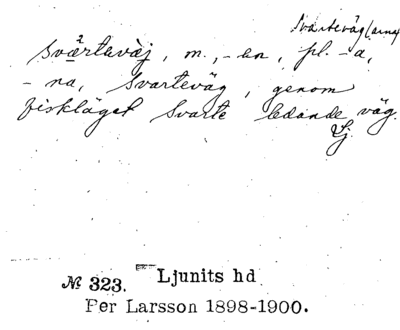 Svarteväg(arna)
svärtevàj, m., -en, pl. -a,
-na, Svarteväg, genom
fiskläget Svarte ledande väg.
Lj.
№ 323. Ljunits hd
Per Larsson 1898-1900.